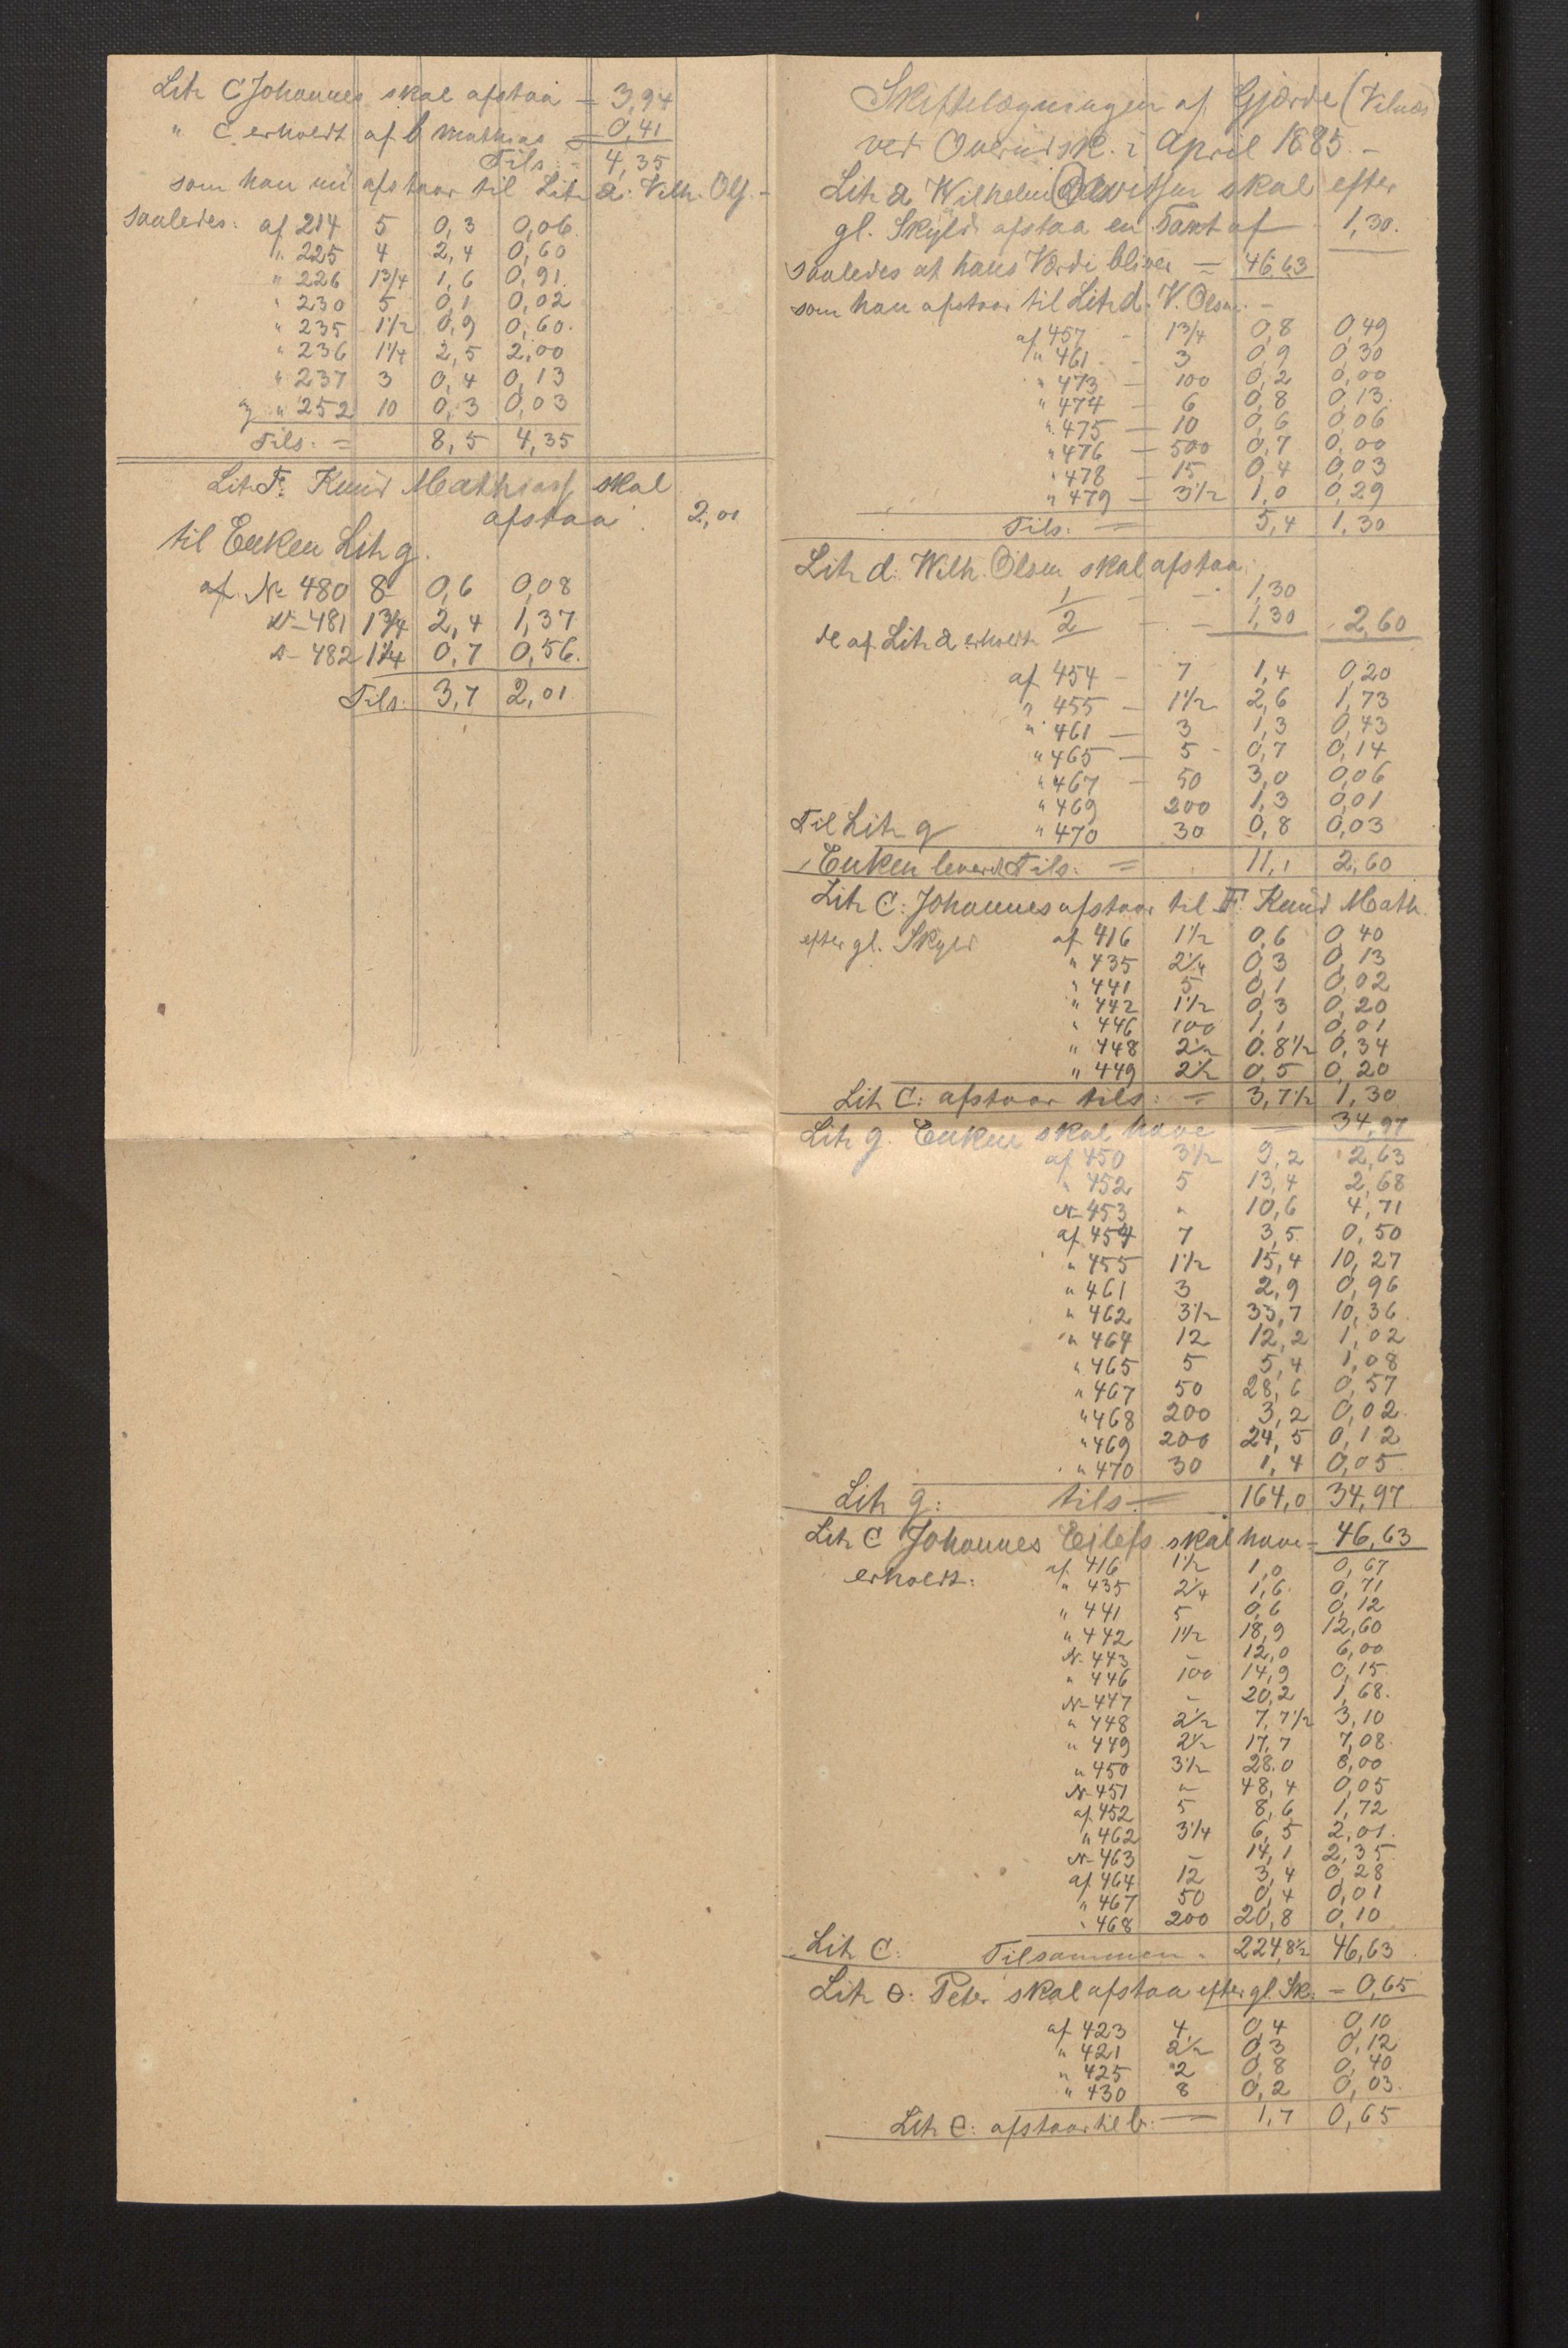 Litr C Johannes skal afstaa = 3,94
" C. erholdt af b Mathias = 0,41
Tils. = 4,35
som han nu afstaar til Litr d. Vilh. Ols. -
saaledes: af 214 5 0,3 0,06.
" 225 4 2,4 0,60
" 226 1 3/4 1,6 0,91.
" 230 5 0,1 0,02
" 235 1 1/2 0,9 0,60.
" 236 1 1/4 2,5 2,00
" 237 3 0,4 0,13
og " 252 10 0,3 0,03
Tils: = 8,5 4,35
Litr F. Knud Mathiass skal
afstaa. 2,00
til Enken Litr g.
af No 480 8 0,6 0,08
N- 481 1 3/4 2,4 1,37
a- 482 1 1/4 0,7 0,56.
Tils. 3,7 2,01.
Skiftelægningen af Gjørde (Vilnæs
ved Overudsk. i April 1885. -
Litr a Wilhelm skal efter
gl. Skyld afstaa en Taxt af 1,30.
saaledes at hans Værdi bliver = 46,63
som han afstaar til Litr d. V. Olsen. -
af 457 - 1 3/4 0,8 0,49
" 461 - 3 0,9 0,30
" 473 - 100 0,2 0,00
" 474 - 6 0,8 0,13.
" 475 - 10 0,6 0,06
" 476 - 500 0,7 0,00
" 478 - 15 0,4 0,03
" 479 - 3 1/2 1,0 0,29
Tils. = 5,4 1,30
Litr d: Wilh. Olsen skal afstaa
1/ - - 1,30
de af Litr a erholdt 2/ - - 1,30 2,60
af 454 - 7 1,4 0,20
" 455 - 1 1/2 2,6 1,73
" 461 - 3 1,3 0,43
" 465 - 5 - 0,7 0,14
" 467 - 50 3,0 0,06
" 469 200 1,3 0,01
Til Litr g " 470 30 0,8 0,03
Enken leveret Tils. = 11,1 2,60
Litr C: Johannes afstaar til F. Knud Math.
efter gl. Skyld af 416 1 1/2 0,6 0,40
" 435 2 1/4 0,3 0,13
" 441 5 0,1 0,02
" 442 1 1/2 0,3 0,20
" 446 100 1,1 0,01
" 448 2 1/2 0.8 1/2 0,34
" 449 2 1/2 0,5 0,20
Litr C: afstaar tils: = 3,7 1/2 1,30
Litr g. Enken skal have — 34,97
af 450 3 1/2 9,2 2,63
" 452 5 13,4 2,68
N- 453 " 10,6 4,71
af 454 7 3,5 0,50
" 455 1 1/2 15,4 10,27
" 461 3 2,9 0,96
" 462 3 1/2 33,7 10,36
" 464 12 12,2 1,02
" 465 5 5,4 1,08
" 467 50 28,6 0,57
" 468 200 3,2 0,02.
" 469 200 24,5 0,12
" 470 30 1,4 0,05
Litr g: tils = 164,0 34,97
Litr C Johannes Eilefs skal have = 46,63
erholdt: af 416 1 1/2 1,0 0,67
" 435 2 1/4 1,6. 0,71
" 441 5 0,6 0,12
" 442 1 1/2 18,9 12,60
N- 443 - 12,0 6,00
" 446 100 14,9 0,15
N- 447 - 20,2 1,68.
" 448 2 1/2 7,7 1/2 3,10
" 449 2 1/2 17,7 7,08.
" 450 3 1/2 28.0 8,00
N- 451 - 48,4 0,05
af 452 5 8,6 1,72
" 462 3 1/4 6,5 2,01.
N- 463 - 14,1 2,35
af 464 12 3,4 0,28
" 467 50 0,4 0,01
" 468 200 20,8 0,10
Litr C: Tilsammen. 224,8 1/2 46,63
Litr e: Peter skal afstaa efter gl. Sk. - 0,65
af 423 4 0,4 0,10
" 421 2 1/2 0,3 0,12
" 425 2 0,8 0,40
" 430 8 0,2 0,03.
Litr e: afstaar til b. — 1,7 0,65